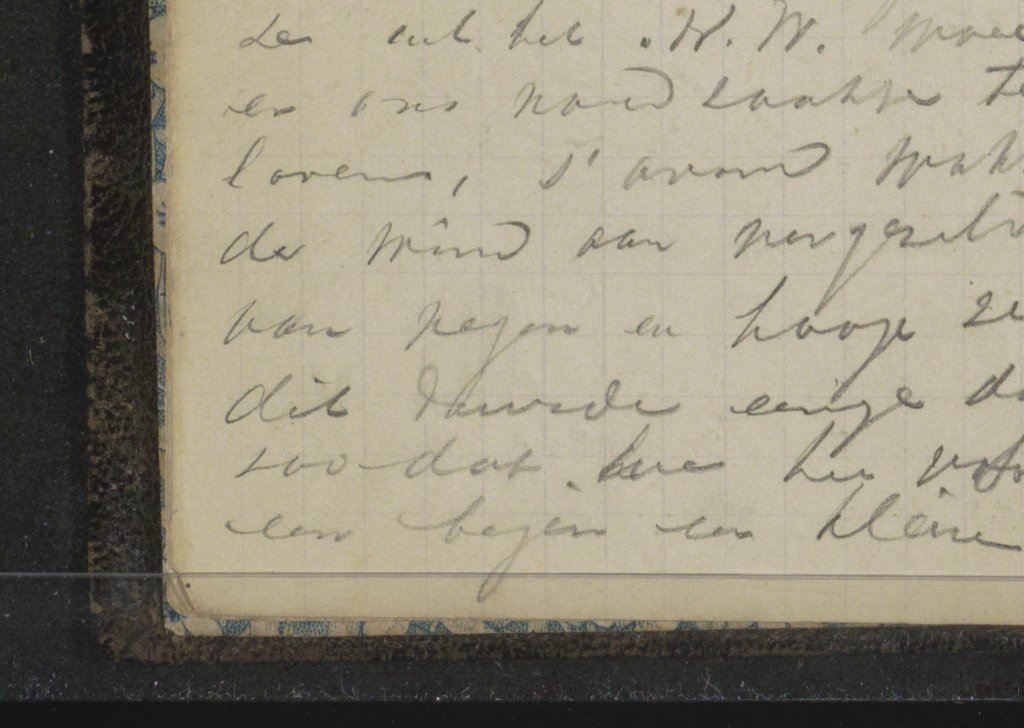 ze uit het N. W. moe
en ons noodzaakte te
loven, s' avond wak
de wind aan vergezeld
van regen en hooge ze
dit duurde eenige da
zoo dat we hier vol
een begin en kleine